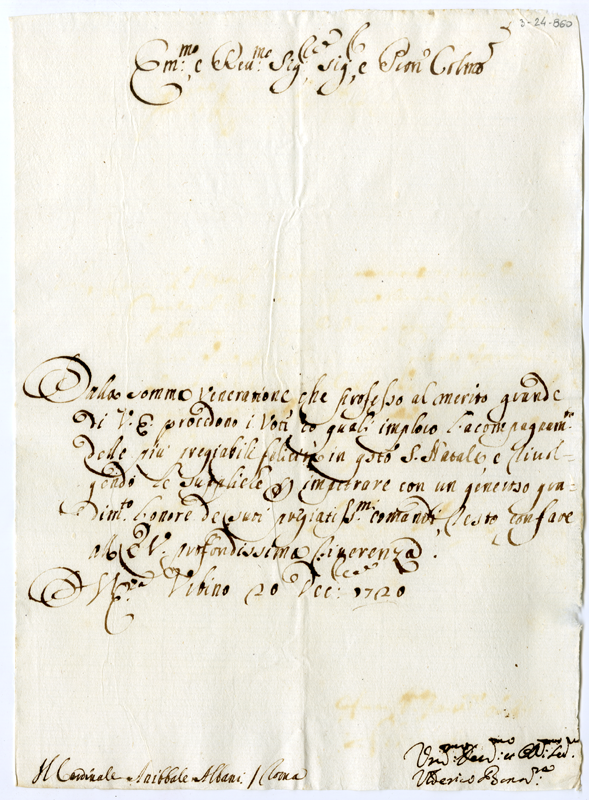 3-24-860
Em.mo e Rev.mo Sig.r Sig.r e Pron. Colmo
Dalla somma Venerazione che professo al merito grande
di V. E. procedono i Voti co quali imploro l'acompagnam.to
delle più pregiabili felicità in qsto S. Natale, e
le suppliche impetrare con un generoso gra-
dim.to l'onore de suoi pregiatiss.mi comandi, resto con fare
all E. V. profondissima riverenza.
D. V. E.za Urbino 20 Dec: 1720
Il Cardinale Anibbale Albani / Roma